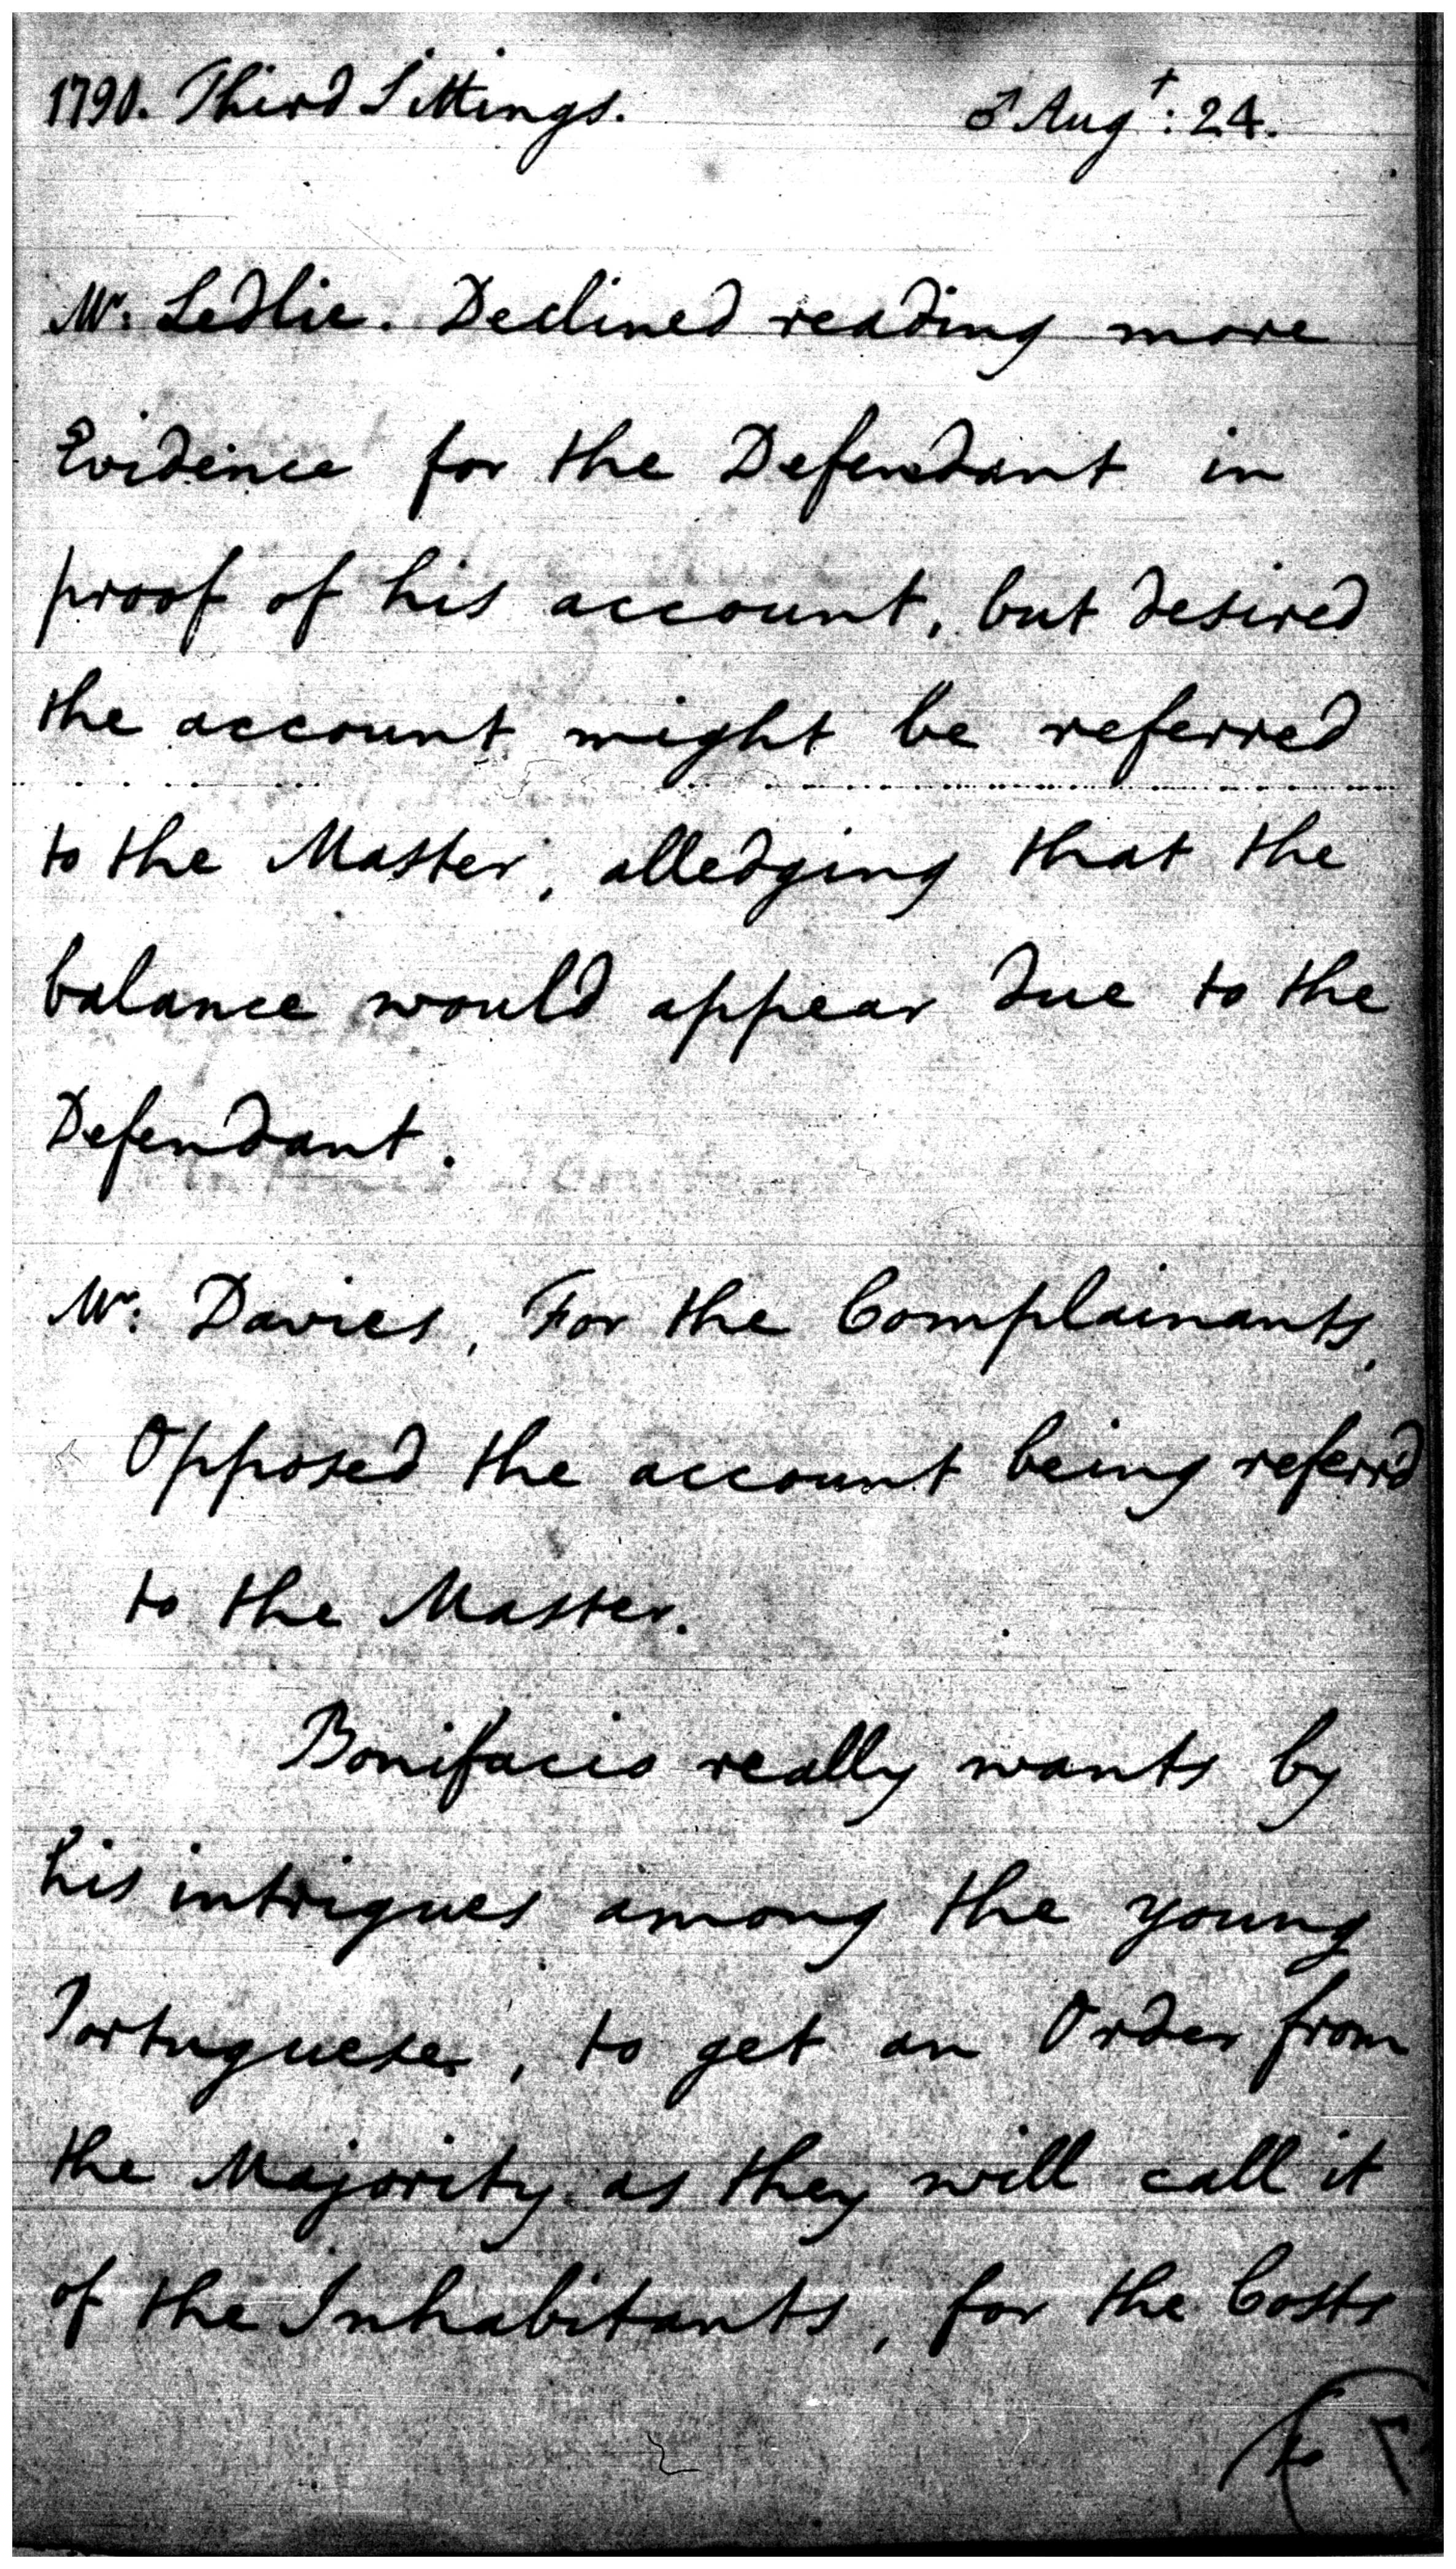 1790. Third Sittings. ♂ Augt: 24.
Mr: Ledlie. Declined reading more
Evidence for the Defendant in
proof of his account, but desired
the account might be referred
to the Master, alledging that the
balance would appear due to the
Defendant.
Mr: Davies, For the Complainants,
Opposed the account being referr'd
to the Master.
Bonifacio really wants by
his intrigues among the young
Portuguese, to get an Order from
the Majority as they will call it
of the Inhabitants, for the Costs